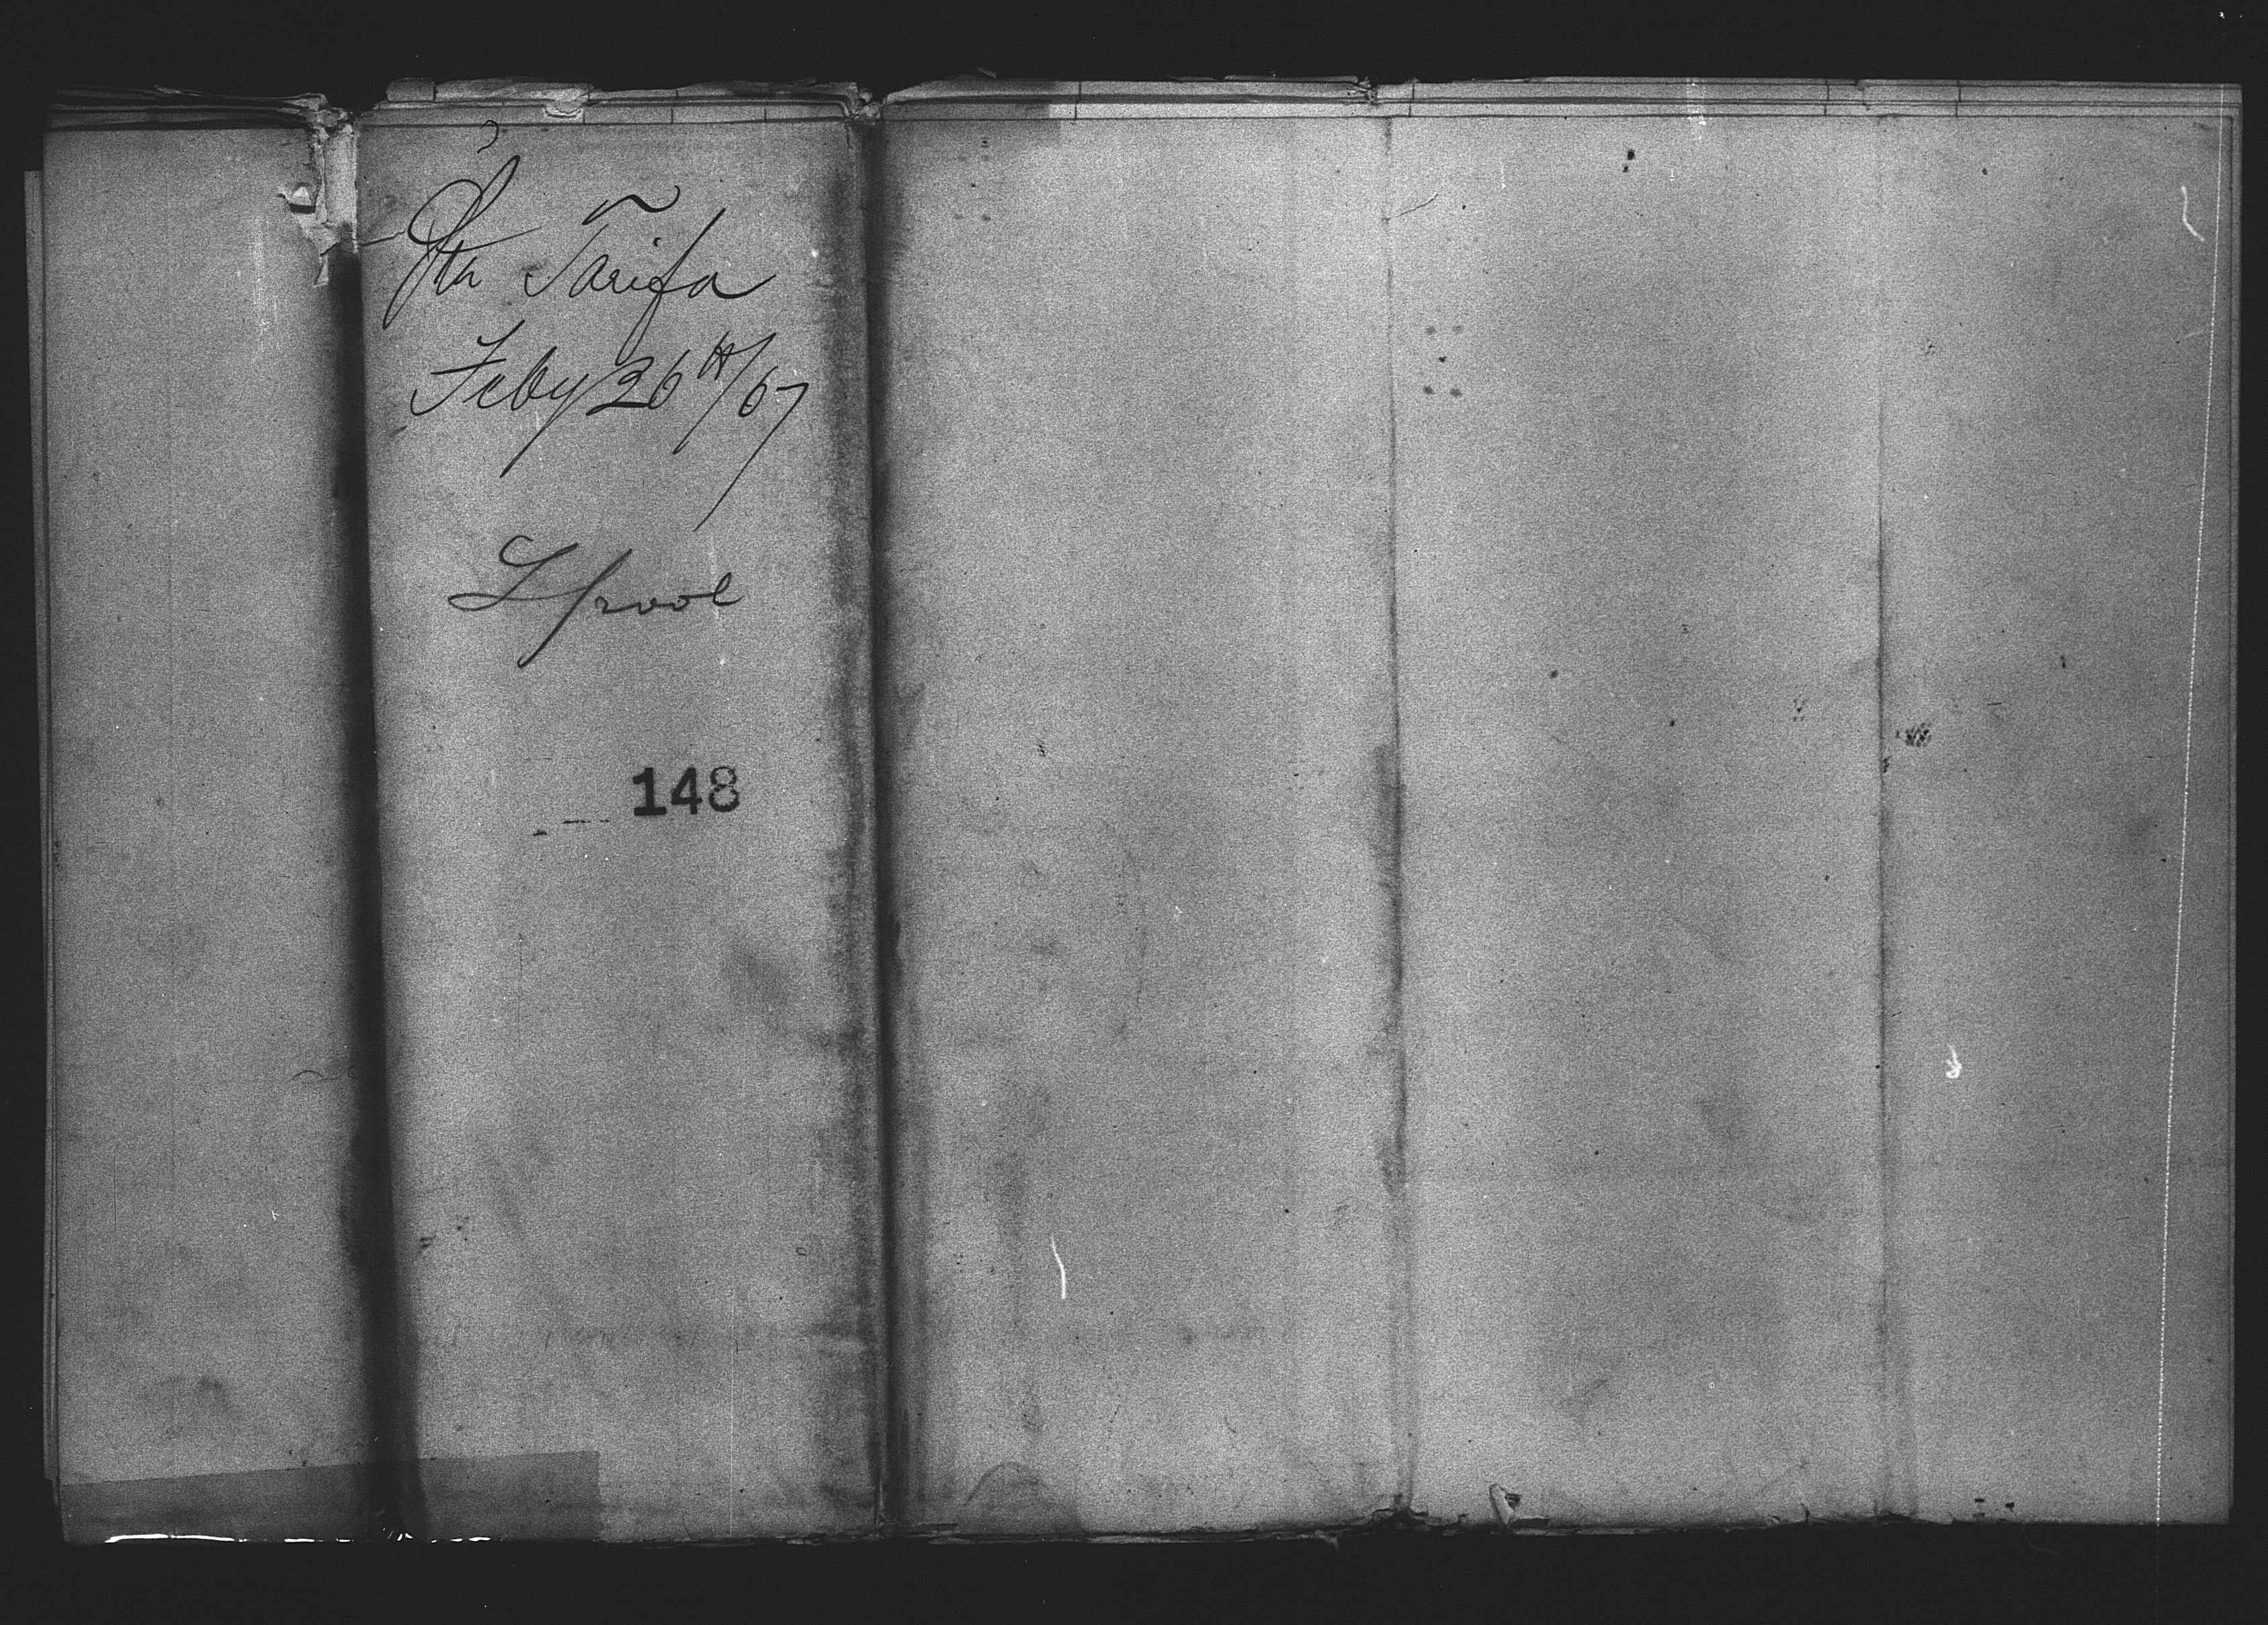 Str Tarifa
Feby 26th/67
Lpool
148